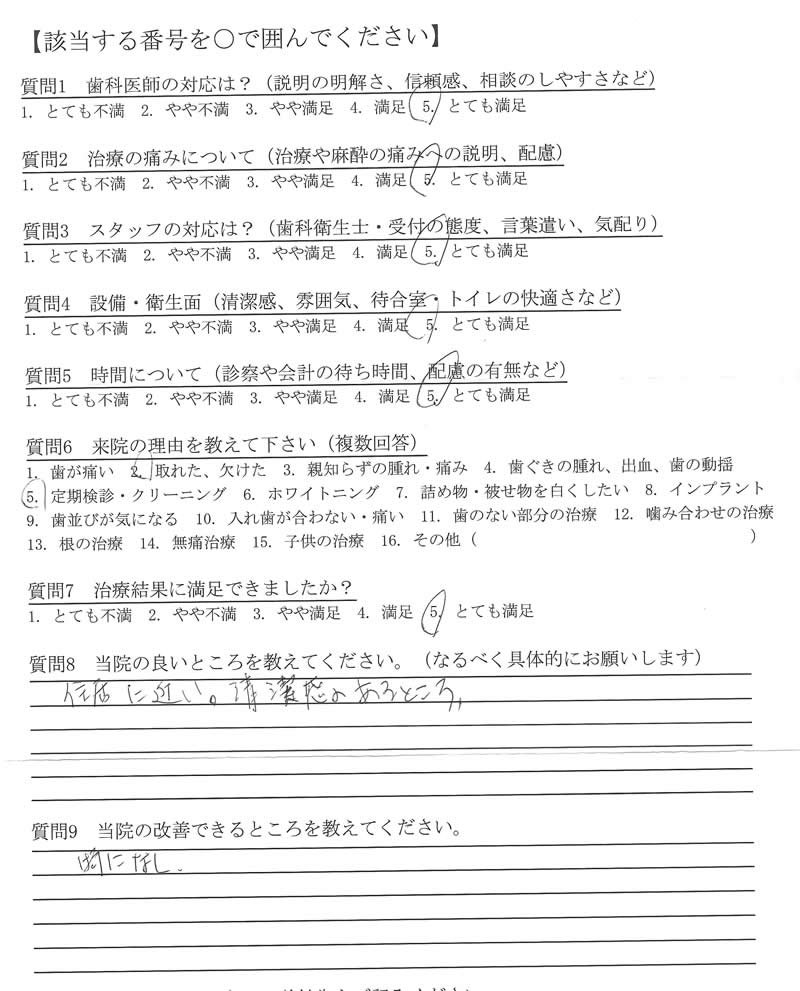 【該当する番号を○で囲んでください】
質問1　歯科医師の対応は？（説明の明解さ、信頼感、相談のしやすさなど）
1. とても不満 2. やや不満 3. やや満足 4. 満足 5. とても満足
質問2　治療の痛みについて（治療や麻酔の痛みへの説明、配慮）
1. とても不満 2. やや不満 3. やや満足 4. 満足 5. とても満足
質問3　スタッフの対応は？（歯科衛生士・受付の態度、言葉遣い、気配り）
1. とても不満 2. やや不満 3. やや満足 4. 満足 5. とても満足
質問4　設備・衛生面（清潔感、雰囲気、待合室・トイレの快適さなど）
1. とても不満 2. やや不満 3. やや満足 4. 満足 5. とても満足
質問5　時間について（診察や会計の待ち時間、配慮の有無など）
1. とても不満 2. やや不満 3. やや満足 4. 満足 5. とても満足
質問6　来院の理由を教えて下さい（複数回答）
1. 歯が痛い 2. 取れた、欠けた 3. 親知らずの腫れ・痛み 4. 歯ぐきの腫れ、出血、歯の動揺
5. 定期検診・クリーニング 6. ホワイトニング 7. 詰め物・被せ物を白くしたい 8. インプラント
9. 歯並びが気になる 10. 入れ歯が合わない・痛い 11. 歯のない部分の治療 12. 噛み合わせの治療
13. 根の治療 14. 無痛治療 15. 子供の治療 16. その他（　　　）
質問7　治療結果に満足できましたか？
1. とても不満 2. やや不満 3. やや満足 4. 満足 5. とても満足
質問8　当院の良いところを教えてください。（なるべく具体的にお願いします）
住居に近い。清潔感のあるところ、
質問9　当院の改善できるところを教えてください。
特になし.